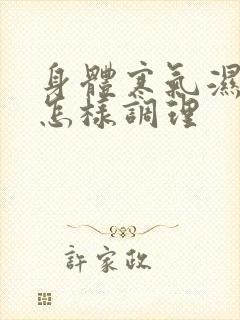 身體寒氣濕
怎樣調理
許家政